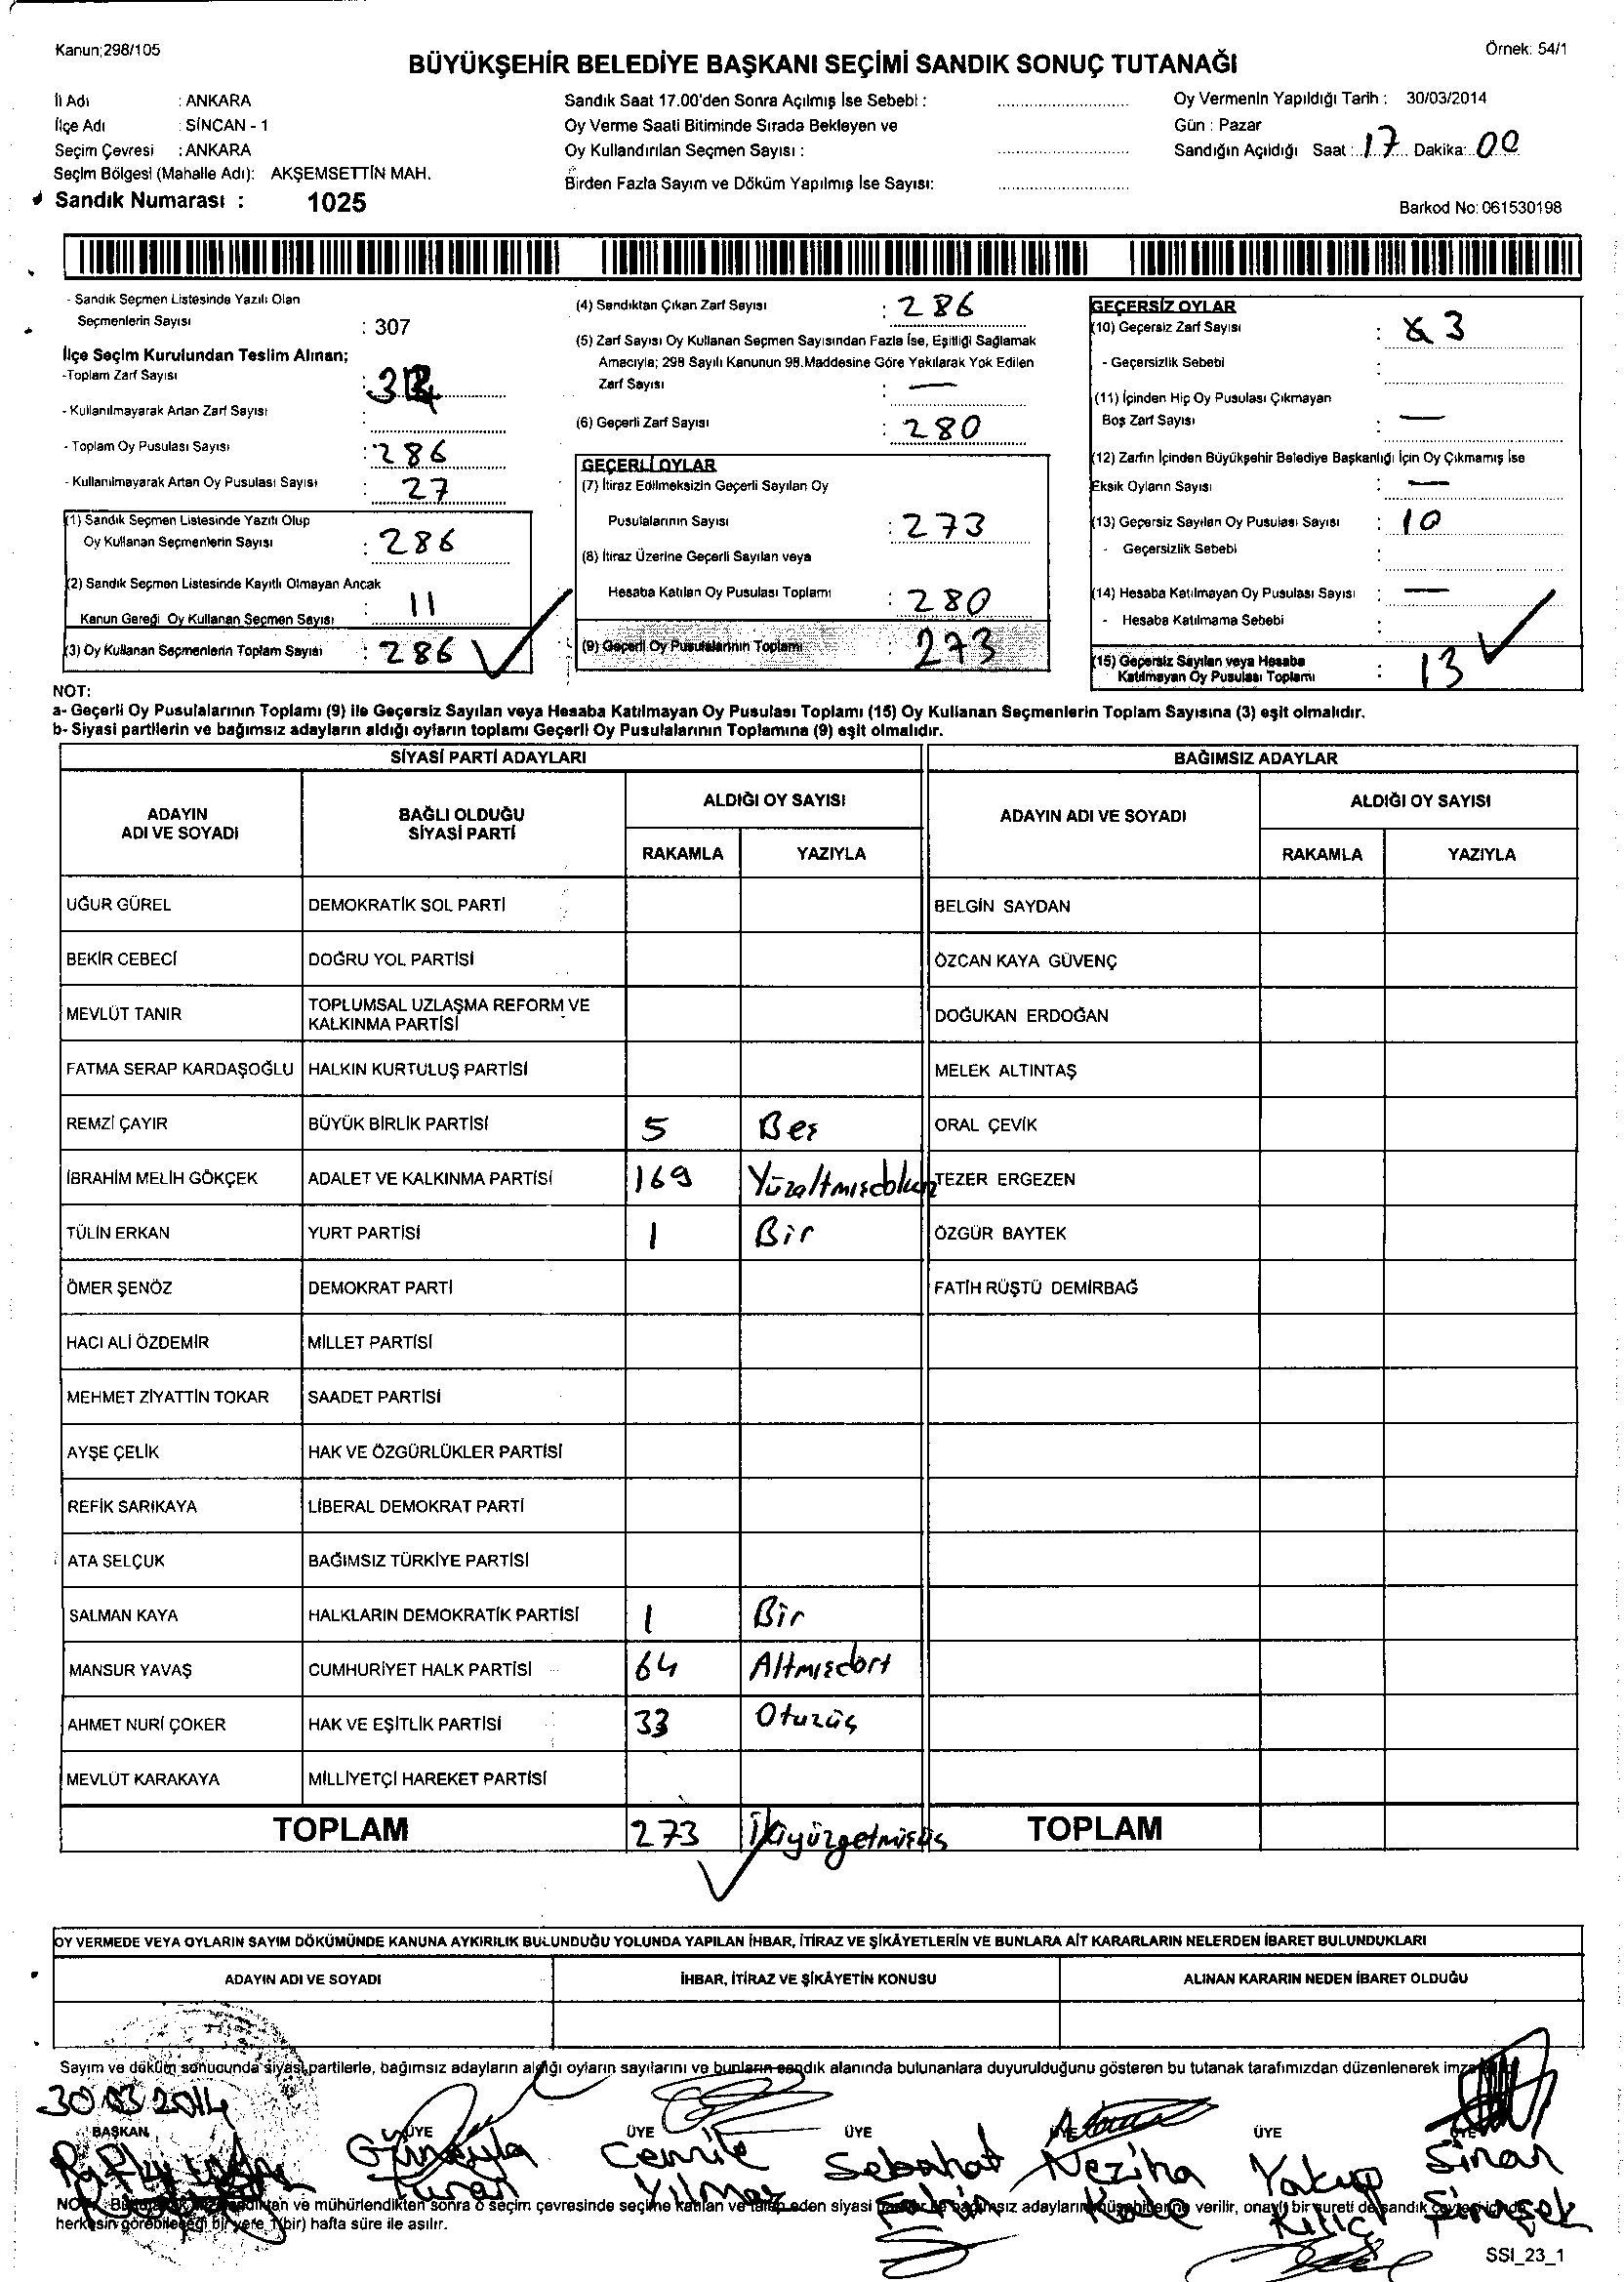 Kanun;298/105
Örnek: 54/1
BÜYÜKŞEHİR BELEDİYE BAŞKANI SEÇİMİ SANDIK SONUÇ TUTANAĞI
İl Adı : ANKARA
İlçe Adı : SİNCAN - 1
Seçim Çevresi : ANKARA
Seçim Bölgesi (Mahalle Adı): AKŞEMSETTİN MAH.
Sandık Numarası : 1025
Sandık Saat 17.00'den Sonra Açılmış İse Sebebi :
Oy Verme Saati Bitiminde Sırada Bekleyen ve
Oy Kullandırılan Seçmen Sayısı :
Birden Fazla Sayım ve Döküm Yapılmış İse Sayısı:
Oy Vermenin Yapıldığı Tarih : 30/03/2014
Gün : Pazar
Sandığın Açıldığı Saat : 17 Dakika: 00
Barkod No: 061530198
- Sandık Seçmen Listesinde Yazılı Olan
Seçmenlerin Sayısı : 307
İlçe Seçim Kurulundan Teslim Alınan;
-Toplam Zarf Sayısı :
- Kullanılmayarak Artan Zarf Sayısı :
- Toplam Oy Pusulası Sayısı : 286
- Kullanılmayarak Artan Oy Pusulası Sayısı : 27
(1) Sandık Seçmen Listesinde Yazılı Olup
Oy Kullanan Seçmenlerin Sayısı : 286
(2) Sandık Seçmen Listesinde Kayıtlı Olmayan Ancak
Kanun Gereği Oy Kullanan Seçmen Sayısı : 11
(3) Oy Kullanan Seçmenlerin Toplam Sayısı : 286
(4) Sandıktan Çıkan Zarf Sayısı : 286
(5) Zarf Sayısı Oy Kullanan Seçmen Sayısından Fazla İse, Eşitliği Sağlamak
Amacıyla; 298 Sayılı Kanunun 98.Maddesine Göre Yakılarak Yok Edilen
Zarf Sayısı : —
(6) Geçerli Zarf Sayısı : 280
GEÇERLİ OYLAR
(7) İtiraz Edilmeksizin Geçerli Sayılan Oy
Pusulalarının Sayısı : 273
(8) İtiraz Üzerine Geçerli Sayılan veya
Hesaba Katılan Oy Pusulası Toplamı : 280
(9) Geçerli Oy Pusulalarının Toplamı : 273
GEÇERSİZ OYLAR
(10) Geçersiz Zarf Sayısı : 3
- Geçersizlik Sebebi :
(11) İçinden Hiç Oy Pusulası Çıkmayan
Boş Zarf Sayısı : —
(12) Zarfın İçinden Büyükşehir Belediye Başkanlığı İçin Oy Çıkmamış İse
Eksik Oyların Sayısı : —
(13) Geçersiz Sayılan Oy Pusulası Sayısı : 10
- Geçersizlik Sebebi :
(14) Hesaba Katılmayan Oy Pusulası Sayısı : —
- Hesaba Katılmama Sebebi :
(15) Geçersiz Sayılan veya Hesaba
Katılmayan Oy Pusulası Toplamı : 13
NOT:
a- Geçerli Oy Pusulalarının Toplamı (9) ile Geçersiz Sayılan veya Hesaba Katılmayan Oy Pusulası Toplamı (15) Oy Kullanan Seçmenlerin Toplam Sayısına (3) eşit olmalıdır.
b- Siyasi partilerin ve bağımsız adayların aldığı oyların toplamı Geçerli Oy Pusulalarının Toplamına (9) eşit olmalıdır.
SİYASİ PARTİ ADAYLARI BAĞIMSIZ ADAYLAR
ADAYIN ADI VE SOYADI BAĞLI OLDUĞU SİYASİ PARTİ ALDIĞI OY SAYISI ADAYIN ADI VE SOYADI ALDIĞI OY SAYISI
RAKAMLA YAZIYLA RAKAMLA YAZIYLA
UĞUR GÜREL DEMOKRATİK SOL PARTİ BELGİN SAYDAN
BEKİR CEBECİ DOĞRU YOL PARTİSİ ÖZCAN KAYA GÜVENÇ
MEVLÜT TANIR TOPLUMSAL UZLAŞMA REFORM VE KALKINMA PARTİSİ DOĞUKAN ERDOĞAN
FATMA SERAP KARDAŞOĞLU HALKIN KURTULUŞ PARTİSİ MELEK ALTINTAŞ
REMZİ ÇAYIR BÜYÜK BİRLİK PARTİSİ 5 Beş ORAL ÇEVİK
İBRAHİM MELİH GÖKÇEK ADALET VE KALKINMA PARTİSİ 169 Yüzaltmışdokuz TEZER ERGEZEN
TÜLİN ERKAN YURT PARTİSİ 1 Bir ÖZGÜR BAYTEK
ÖMER ŞENÖZ DEMOKRAT PARTİ FATİH RÜŞTÜ DEMİRBAĞ
HACI ALİ ÖZDEMİR MİLLET PARTİSİ
MEHMET ZİYATTİN TOKAR SAADET PARTİSİ
AYŞE ÇELİK HAK VE ÖZGÜRLÜKLER PARTİSİ
REFİK SARIKAYA LİBERAL DEMOKRAT PARTİ
ATA SELÇUK BAĞIMSIZ TÜRKİYE PARTİSİ
SALMAN KAYA HALKLARIN DEMOKRATİK PARTİSİ 1 Bir
MANSUR YAVAŞ CUMHURİYET HALK PARTİSİ 64 Altmışdört
AHMET NURİ ÇOKER HAK VE EŞİTLİK PARTİSİ 33 Otuzüç
MEVLÜT KARAKAYA MİLLİYETÇİ HAREKET PARTİSİ
TOPLAM 273 İkiyüzyetmişüç TOPLAM
OY VERMEDE VEYA OYLARIN SAYIM DÖKÜMÜNDE KANUNA AYKIRILIK BULUNDUĞU YOLUNDA YAPILAN İHBAR, İTİRAZ VE ŞİKÂYETLERİN VE BUNLARA AİT KARARLARIN NELERDEN İBARET BULUNDUKLARI
ADAYIN ADI VE SOYADI İHBAR, İTİRAZ VE ŞİKÂYETİN KONUSU ALINAN KARARIN NEDEN İBARET OLDUĞU
Sayım ve döküm sonucunda siyasi partilerle, bağımsız adayların aldığı oyların sayılarını ve bunların sandık alanında bulunanlara duyurulduğunu gösteren bu tutanak tarafımızdan düzenlenerek
30.03.2014
BAŞKAN ÜYE ÜYE ÜYE ÜYE ÜYE
Turan Cemile Yılmaz Sebahat Şahin Neziha Yakup Kılıç Sinan Şimşek
ve mühürlendikten sonra o seçim çevresinde seçime katılan ve eden siyasi adayların verilir, onaylı bir sureti de sandık
herkesin görebileceği bir yere 1(bir) hafta süre ile asılır.
SSI_23_1